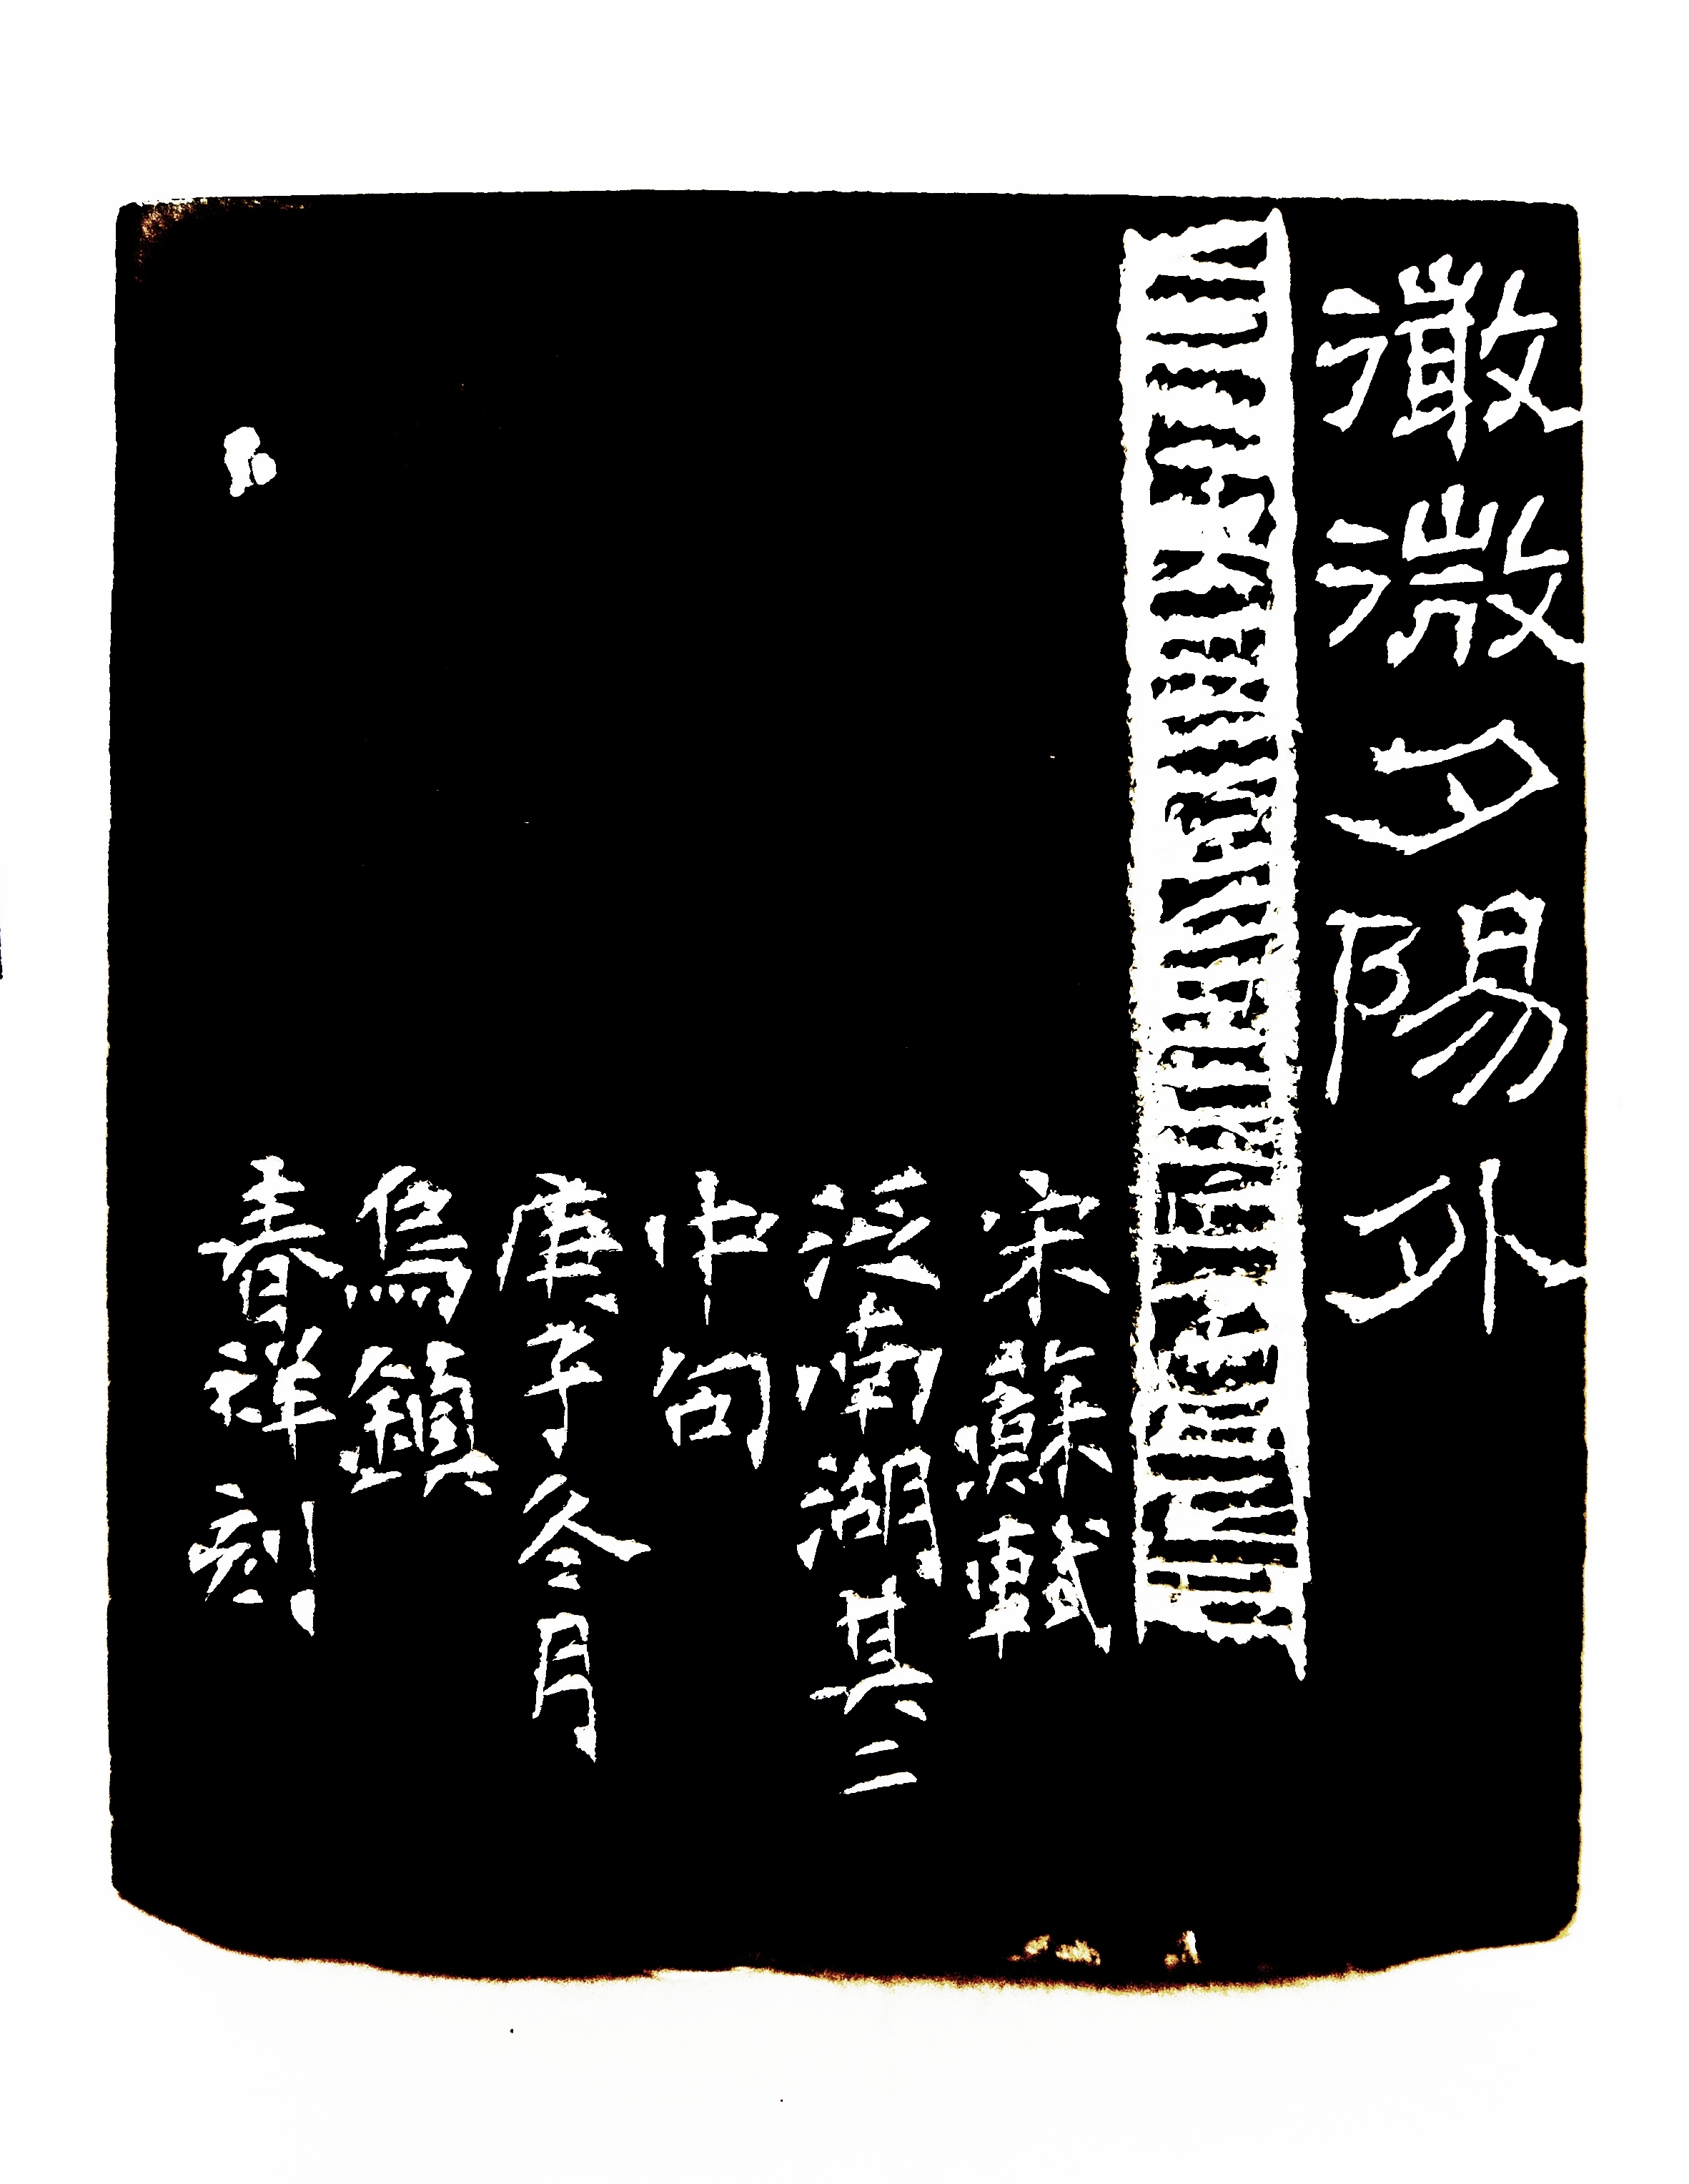 微微夕陽外
宋蘇軾
泛南湖其二
中句
庚子冬月
烏鎮
春祥刻